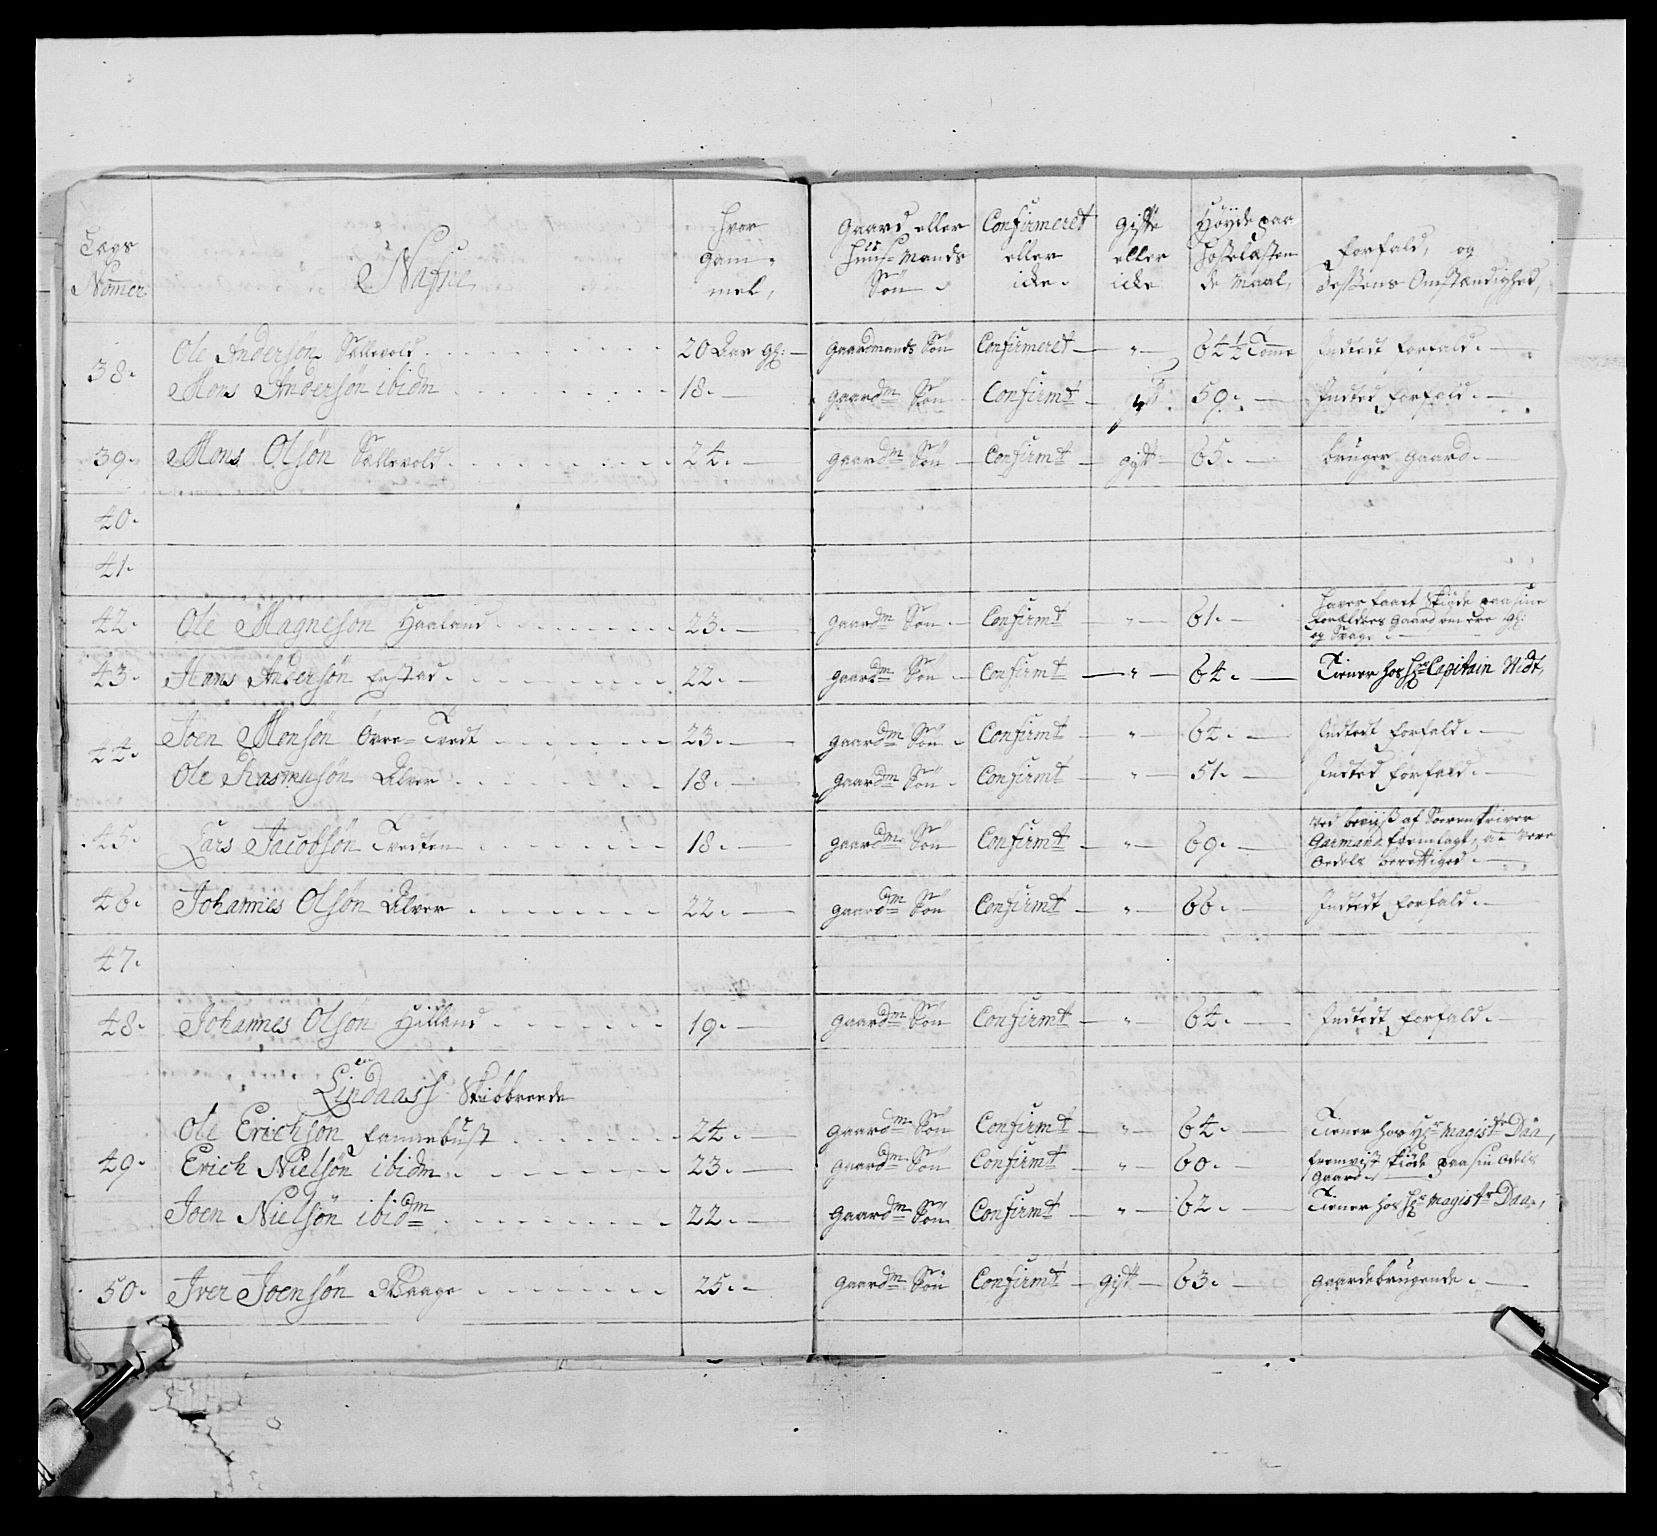 Lægs Nomer | Nafne | hvor gam-mel, | Gaard eller Huus-Mands Søn | Confirmeret eller ikke. | gifte eller ikke | Høyde paa hosselæsten de Maal, | forfald, og Omstændighed,
38. | Ole Andersøn Sellevold | 20 Aar gl: | Gaardmands Søn | Confirmeret | " | 64½ Tomme | Indtedt forfald.
Mons Andersøn ibidm | 18. | gaardm Søn | Confirmt | | 59. | Indted forfald.
39. | Mons Olsøn Sellevold | 24. | gaardm Søn | Confirmt | gift | 65. | bruger Gaard.
40.
41.
42. | Ole Magneson Haaland | 23. | gaardm Søn | Confirmt | " | 61. | haver faaet skiøde paa sine
Forældres Gaard som ere gl:
og Svage.
43. | Hans Andersøn Festad | 22. | gaardm Søn | Confirmt | " | 64. | Tiener hos Hr Capitain Widt,
44. | Joen Monsøn Øvre-Tvedt | 23. | gaardm Søn | Confirmt | " | 64. | Indtedt forfald.
Ole Rasmusøn Alver | 18. | gaardm Søn | Confirmt | " | 51. | Indted forfald.
45. | Lars Jacobsøn Tvedten | 18. | gaardm Søn | Confirmt | " | 69. | Ved beviiß af Sorenskriver
Garmand fremlagt, at være
Oedels berettiged.
46. | Johannes Olsøn Alver | 22. | gaardm Søn | Confirmt | " | 66. | Indtedt forfald.
47.
48. | Johannes Olsøn Hilland | 19. | gaardm Søn | Confirmt | " | 64. | Indtedt forfald.
Lindaass Skibbreede
49. | Ole Erichsøn Fammebust | 24. | gaardm Søn | Confirmt | " | 64. | Tiener hos Hr Magistr Daa,
Erich Nielsøn ibidm | 23. | gaardm Søn | Confirmt | " | 60. | fremvist skiøde paa sin Odels
Gaard.
Joen Nielsøn ibidm | 22. | gaardm Søn | Confirmt | " | 62. | Tiener hos Hr Magistr Daa,
50. | Iver Joensøn Waage | 25. | gaardm Søn | Confirmt | gift | 63. | gaardebrugende.